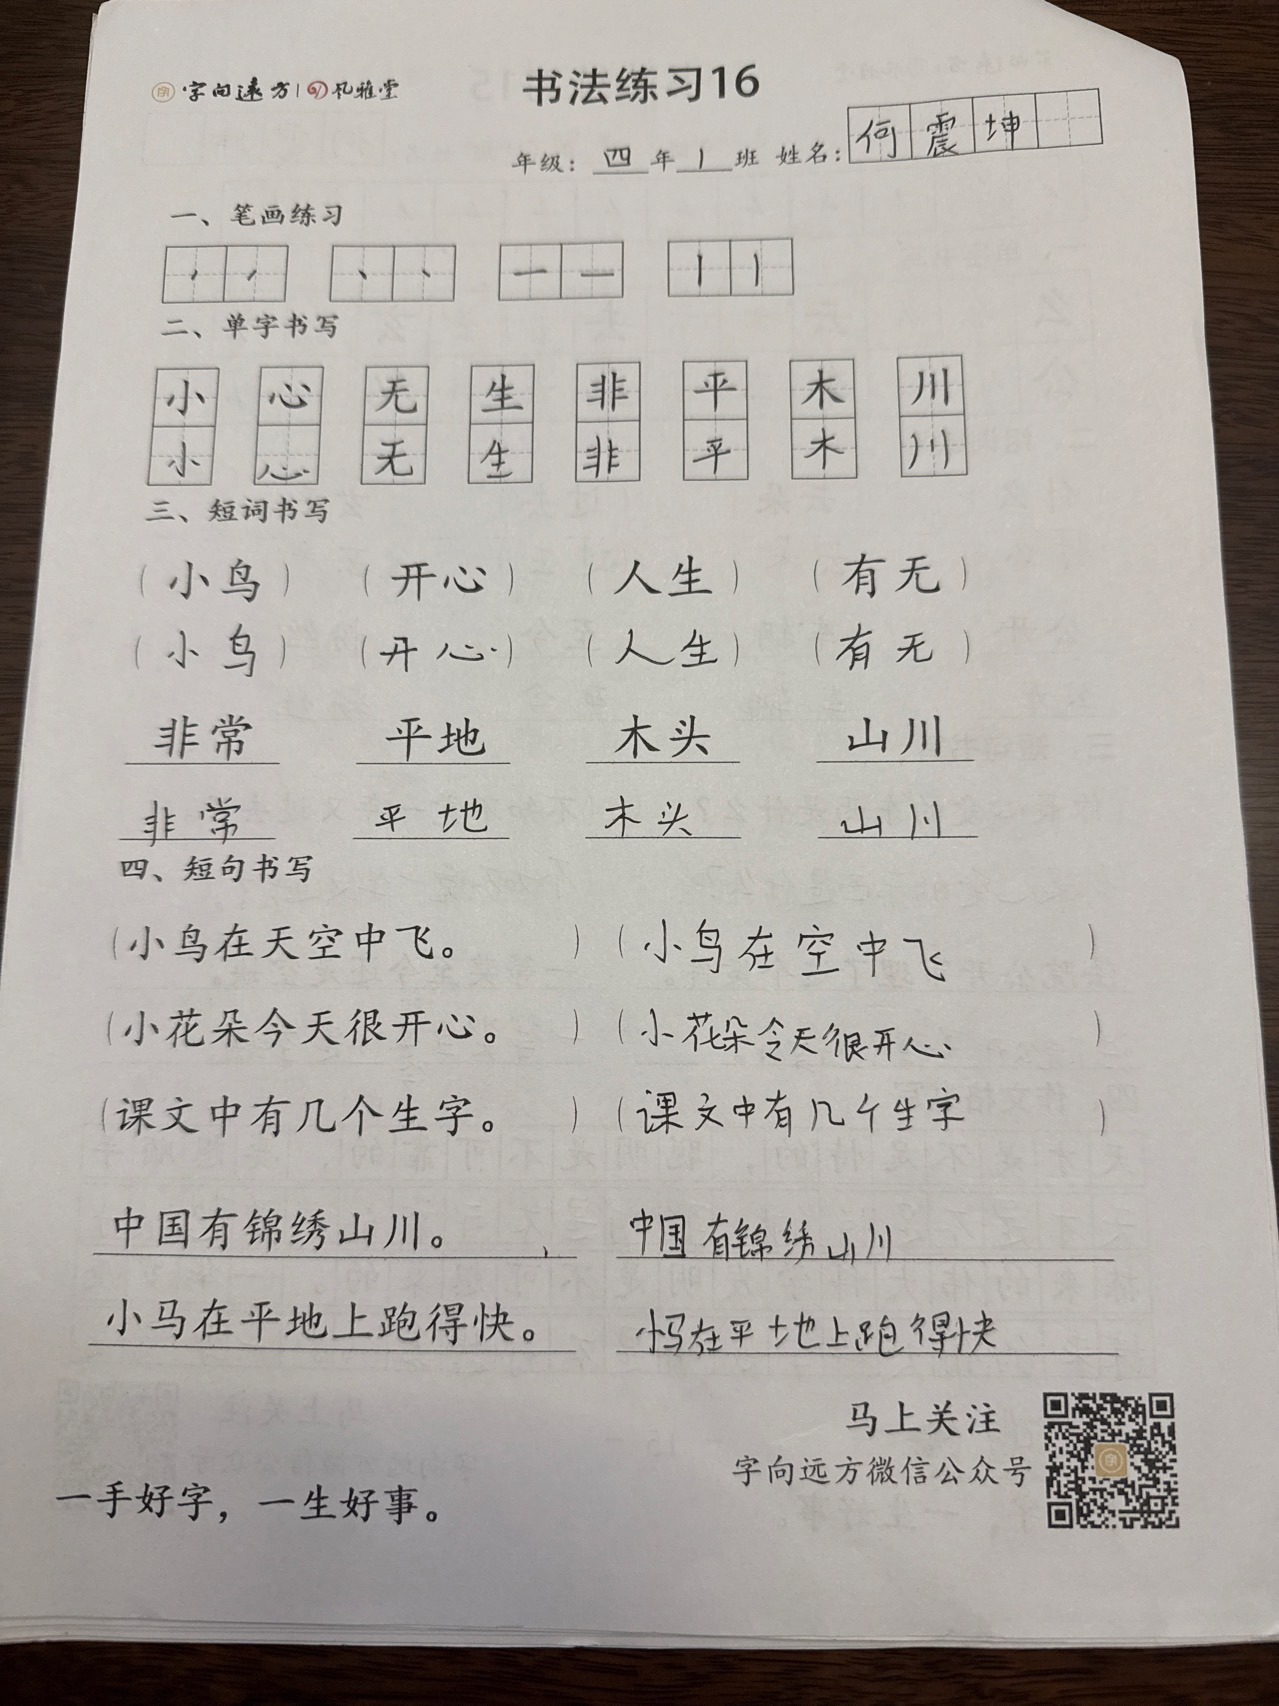 字向远方 风雅堂
书法练习16
年级：四年1班 姓名：何震坤
一、笔画练习
二、单字书写
小 心 无 生 非 平 木 川
小 心 无 生 非 平 木 川
三、短词书写
（小鸟） （开心） （人生） （有无）
（小鸟） （开心） （人生） （有无）
非常 平地 木头 山川
非常 平地 木头 山川
四、短句书写
（小鸟在天空中飞。 ） （小鸟在空中飞 ）
（小花朵今天很开心。 ） （小花朵今天很开心 ）
（课文中有几个生字。 ） （课文中有几个生字 ）
中国有锦绣山川。 中国有锦绣山川
小马在平地上跑得快。 小马在平地上跑得快
马上关注
字向远方微信公众号
一手好字，一生好事。